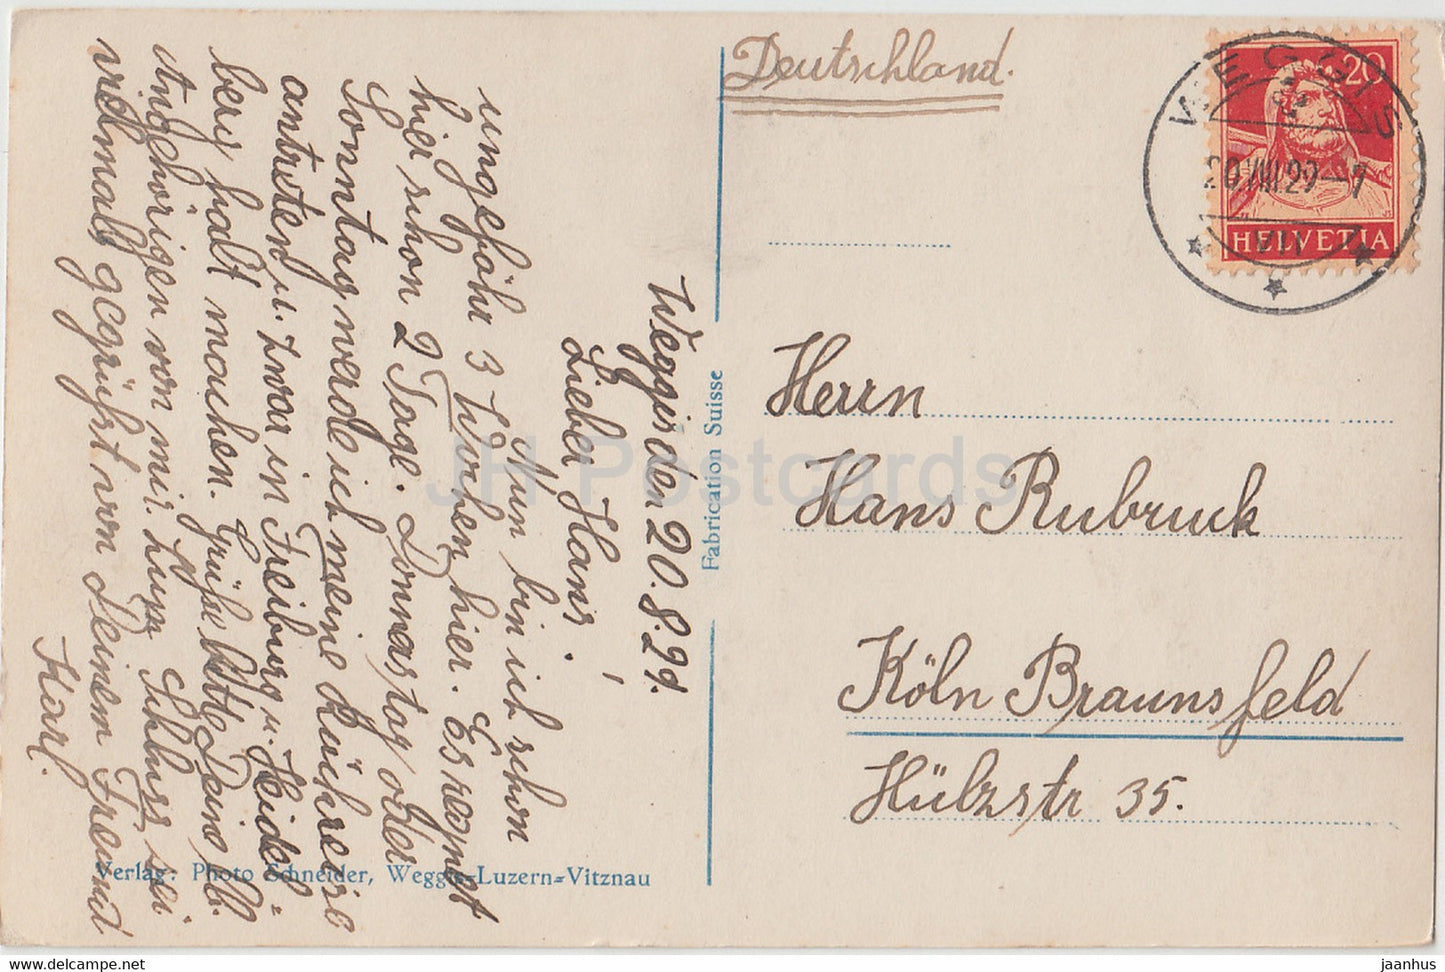 Weggis den 20.8.29.
Lieber Hans!
Nun bin ich schon
ungefähr 3 Wochen hier. Es regnet
hier schon 2 Tage. Donnerstag oder
Sonntag werde ich meine Rückreise
antreten u. zwar in Freiburg u. Heidel-
berg halt machen. Grüße bitte Deine lb.
Angehörigen von mir. Zum Schluss sei
vielmals gegrüßt von Deinem Freund
Karl.
Verlag: Photo Schneider, Weggis-Luzern-Vitznau
Fabrication Suisse
Deutschland.
WEGGIS
20.VIII.29
VII
20
HELVETIA
Herrn
Hans Rubruck
Köln Braunsfeld
Hülzstr 35.
JH Postcards
jaanhus